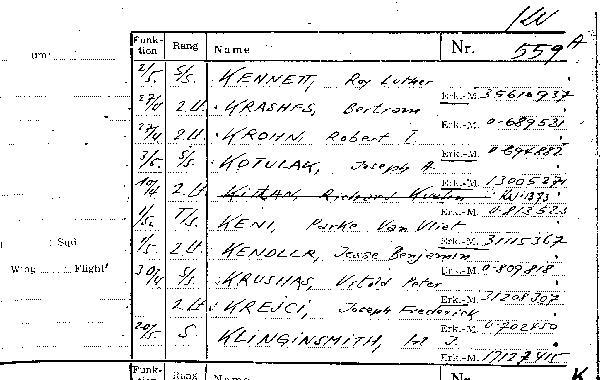 KW
Funk-tion Rang Name Nr. 559 A
2/5 S/S. KENNETT, Roy Luther
Erk.-M. 35610937
27/4 2.Lt. KRASHES, Bertram
Erk.-M. 0-689531
27/4 2.Lt. KROHN, Robert I.
Erk.-M. 0-694882
3/5 S/S. KOTULAK, Joseph A.
Erk.-M. 13005274
10/4 2.Lt Richard
Erk.-M. 0-813523
1/5. T/S. KENI, Parke Van Vliet
Erk.-M. 31115367
1/5 2.Lt KENDLER, Jesse Benjamin
Erk.-M. 0-809818
30/4 S/S. KRUSHAS, Vitold Peter
Erk.-M. 31208307
2.Lt. KREJCI, Joseph Frederick
Erk.-M. 0-702450
20/5. S KLINGINSMITH, J.
Erk.-M. 17127415
Sqd
Wing Flight
Funk- Rang Name K